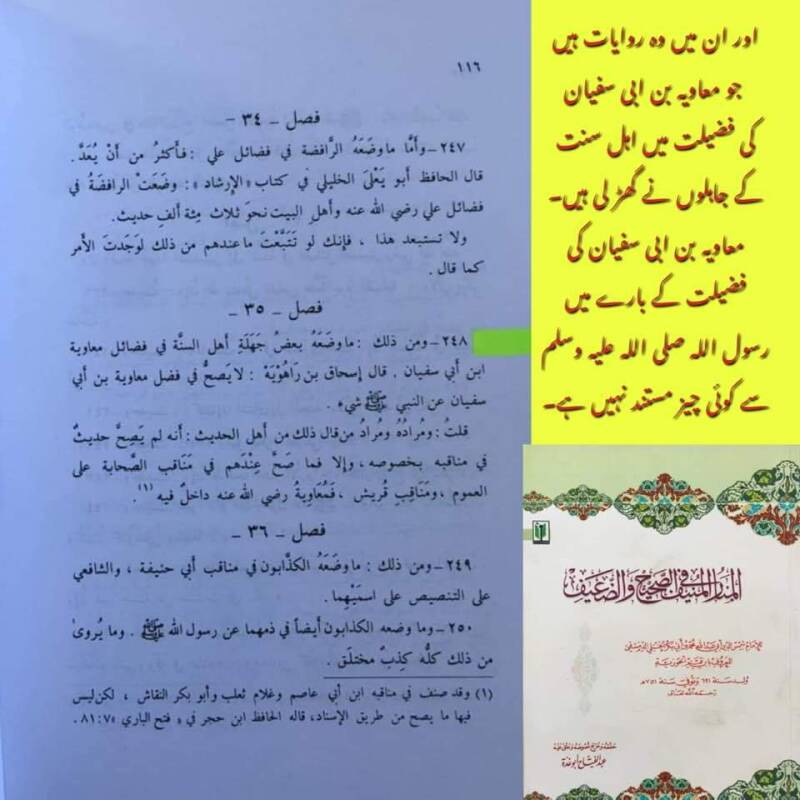 ١١٦
فصل ـ ٣٤ ـ
٢٤٧ ـ وأمَّا ماوضَعَهُ الرَّافضة في فضائل علي : فأكثرُ من أنْ يُعَدَّ .
قال الحافظ أبو يَعْلَى الخليلي في كتاب «الإرشاد» : وضَعَتْ الرافضةُ في
فضائل علي رضي الله عنه وأهلِ البيت نحوَ ثلاث مِئة ألفِ حديث.
ولا تستبعد هذا ، فإنك لو تَتَبَّعْتَ ماعندهم من ذلك لوَجَدتَ الأمر
كما قال .
فصل ـ ٣٥ ـ
٢٤٨ ـ ومن ذلك : ماوضَعَهُ بعضُ جَهَلَةِ أهل السنَّة في فضائل معاوية
ابن أبي سفيان . قال إسحاق بن رَاهُوْيَهْ : لايَصحُّ في فضل معاوية بن أبي
سفيان عن النبي ﷺ شيء .
قلتُ : ومُرادُهُ ومُرادُ من قال ذلك من أهل الحديث : أنه لم يَصِحَّ حديثٌ
في مناقبه بخصوصه ، وإلا فما صَحَّ عِنْدَهم في مَناقب الصَّحابة على
العموم ، ومَناقِبِ قُريش ، فمُعاويةُ رضي الله عنه داخلٌ فيه (١) .
فصل ـ ٣٦ ـ
٢٤٩ ـ ومن ذلك : ماوضَعَهُ الكذَّابون في مناقب أبي حنيفة ، والشافعي
على التنصيص على اسمَيْهِما .
٢٥٠ ـ وما وضعه الكذابون أيضاً في ذمهما عن رسول الله ﷺ . وما يُروىٰ
من ذلك كلُّه كذِبٌ مختلَق .
(١) وقد صنف في مناقبه ابن أبي عاصم وغلام ثعلب وأبو بكر النقاش ، لكن ليس
فيها ما يصح من طريق الإسناد، قاله الحافظ ابن حجر في « فتح الباري » ٧ : ٨١ .
اور ان میں وہ روایات ہیں
جو معاویہ بن ابی سفیان
کی فضیلت میں اہل سنت
کے جاہلوں نے گھڑ لی ہیں۔
معاویہ بن ابی سفیان کی
فضیلت کے بارے میں
رسول اللہ صلی اللہ علیہ وسلم
سے کوئی چیز مستند نہیں ہے۔
المنار المنيف في الصحيح والضعيف
للإمام شمس الدين أبي عبد الله محمد بن أبي بكر الحنبلي الدمشقي
المعروف بابن قيم الجوزية
ولد سنة ٦٩١ وتوفي سنة ٧٥١ هـ
رحمه الله تعالى
حققه وخرج نصوصه وعلق عليه
عبد الفتاح أبو غدة